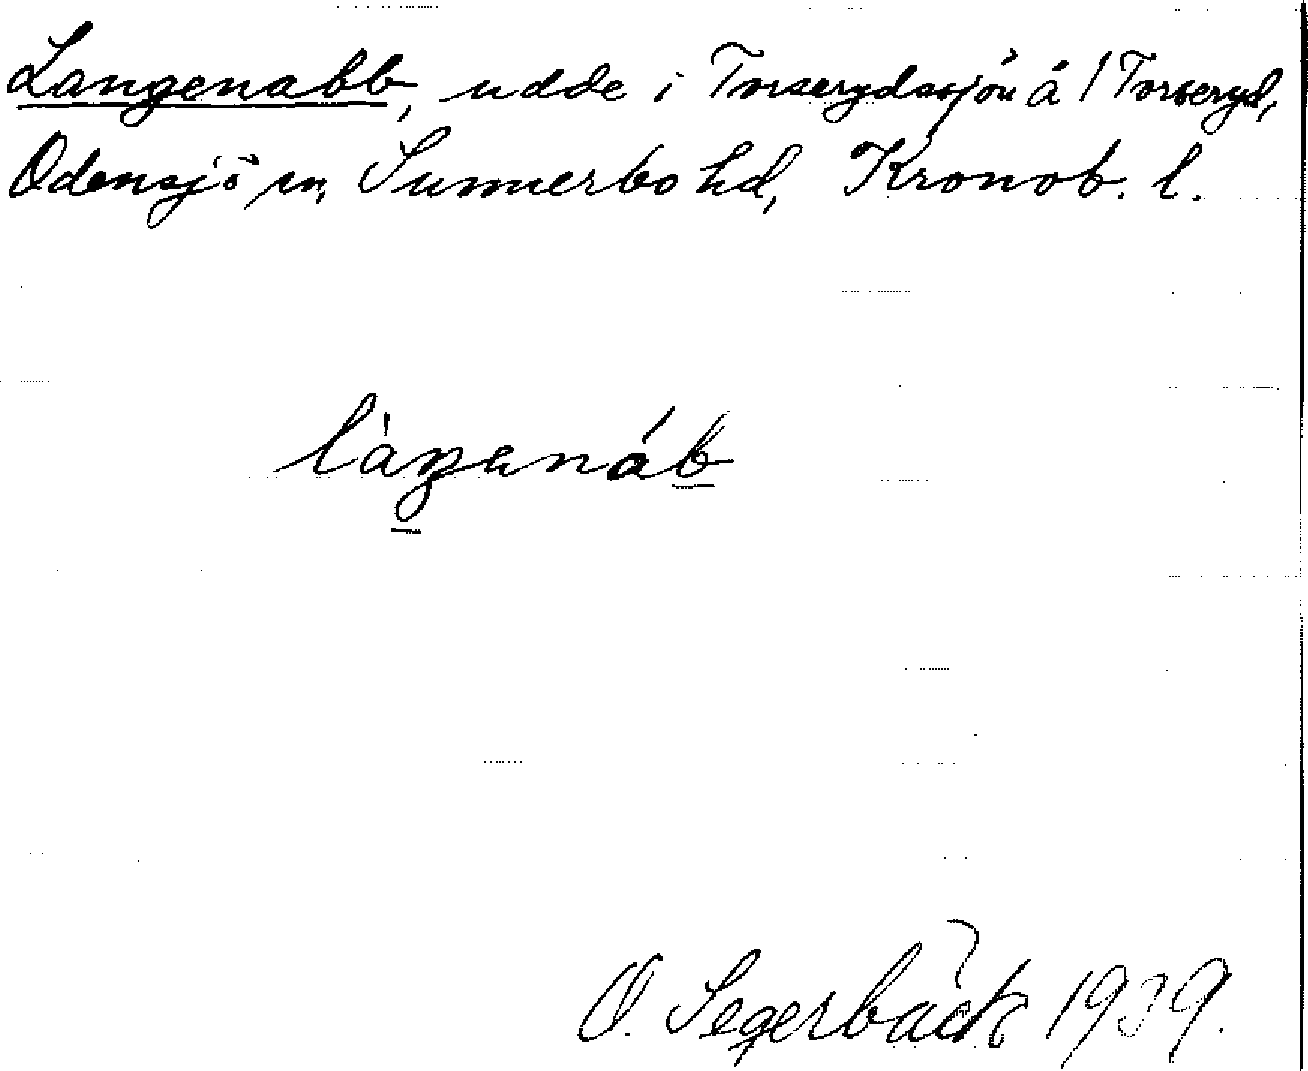 Langenabb, udde i Torserydssjön å 1 Torseryd,
Odensjö sn, Sunnerbo hd, Kronob. l.
làŋenáb
O. Segerbäck 1939.